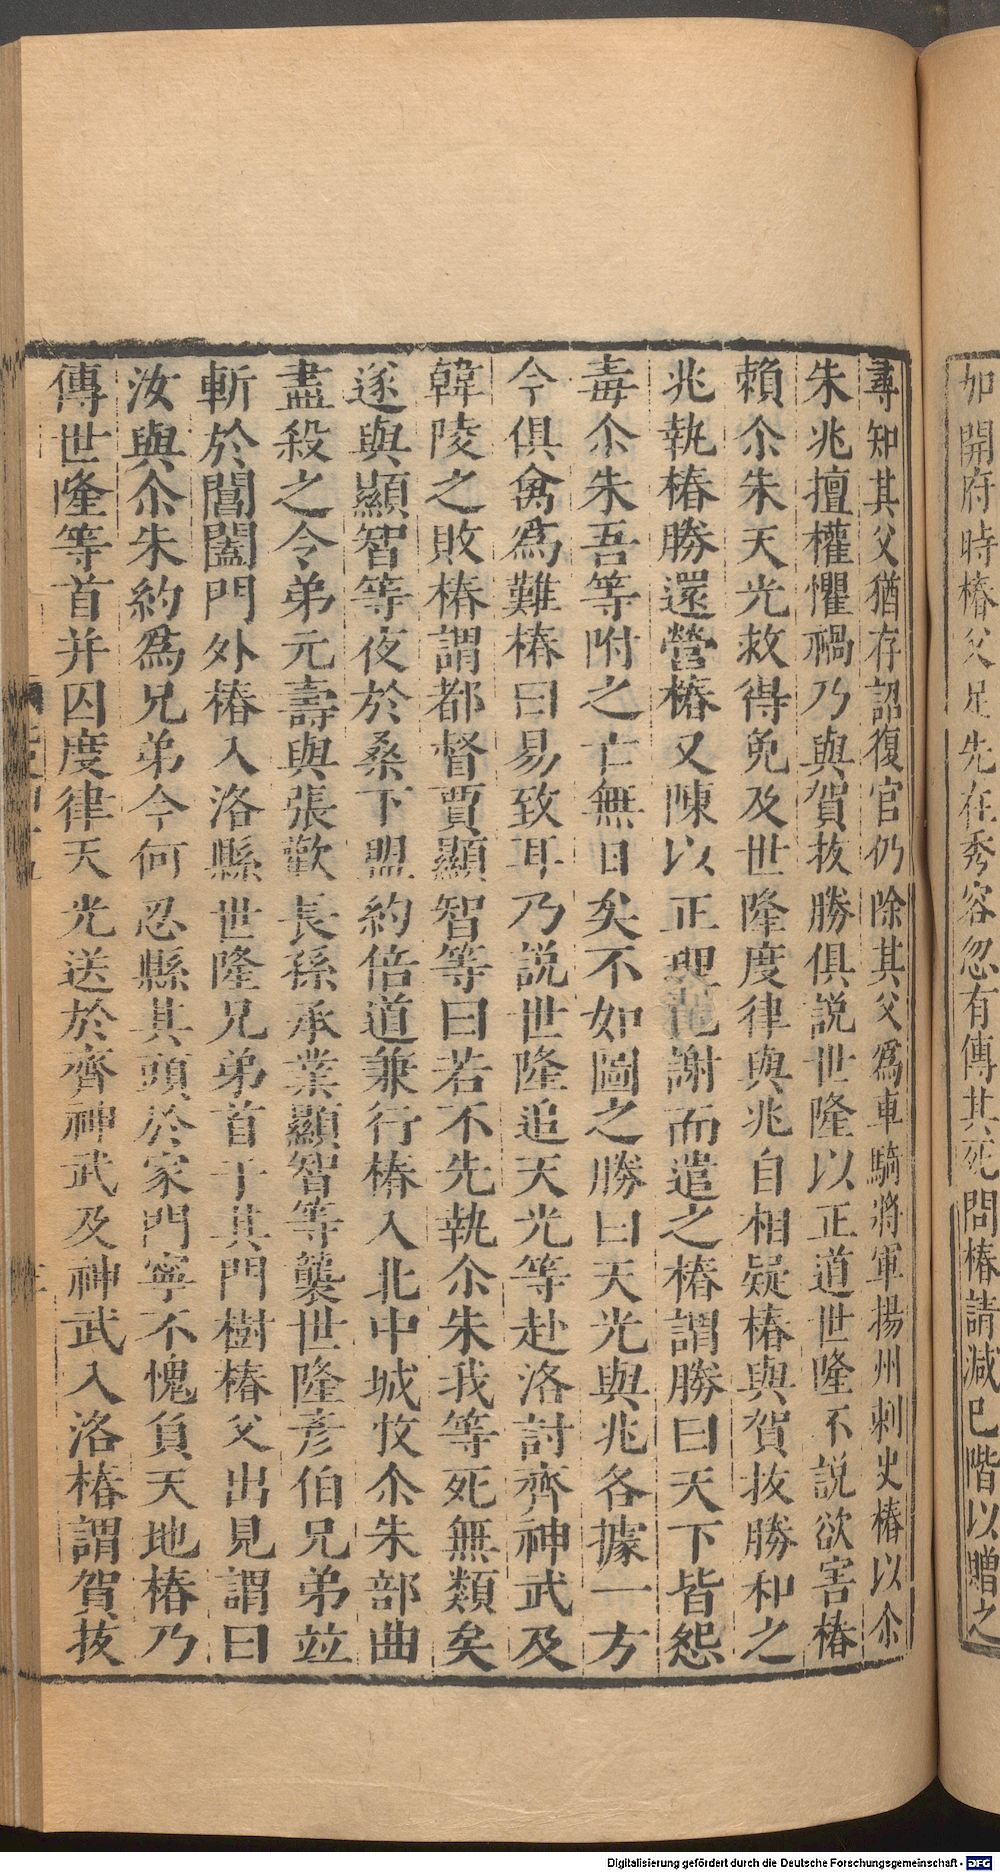 加開府時椿父足先在秀容忽有傳其死問椿請減已階以贈之
尋知其父猶存詔復官仍除其父為車騎將軍揚州刺史椿以尒
朱兆擅權懼禍乃與賀抜勝俱説世隆以正道世隆不説欲害椿
賴尒朱天光救得免及世隆度律與兆自相疑椿與賀抜勝和之
兆執椿勝還營椿又陳以正理 謝而遣之椿謂勝曰天下皆怨
毒尒朱吾等附之亡無日矣不如圖之勝曰天光與兆各據一方
今俱禽為難椿曰易致耳乃説世隆追天光等赴洛討齊神武及
韓陵之敗椿謂都督賈顯智等曰若不先執尒朱我等死無類矣
遂與顯智等夜於桑下盟約倍道兼行椿入北中城收尒朱部曲
盡殺之令弟元壽與張歡長孫承業顯智等襲世隆彥伯兄弟竝
斬於閶闔門外椿入洛縣世隆兄弟首于其門樹椿父出見謂曰
汝與尒朱約為兄弟今何忍縣其頭於家門寧不愧負天地椿乃
傳世隆等首并囚度律天光送於齊神武及神武入洛椿謂賀抜
Digitalisierung gefördert durch die Deutsche Forschungsgemeinschaft - DFG